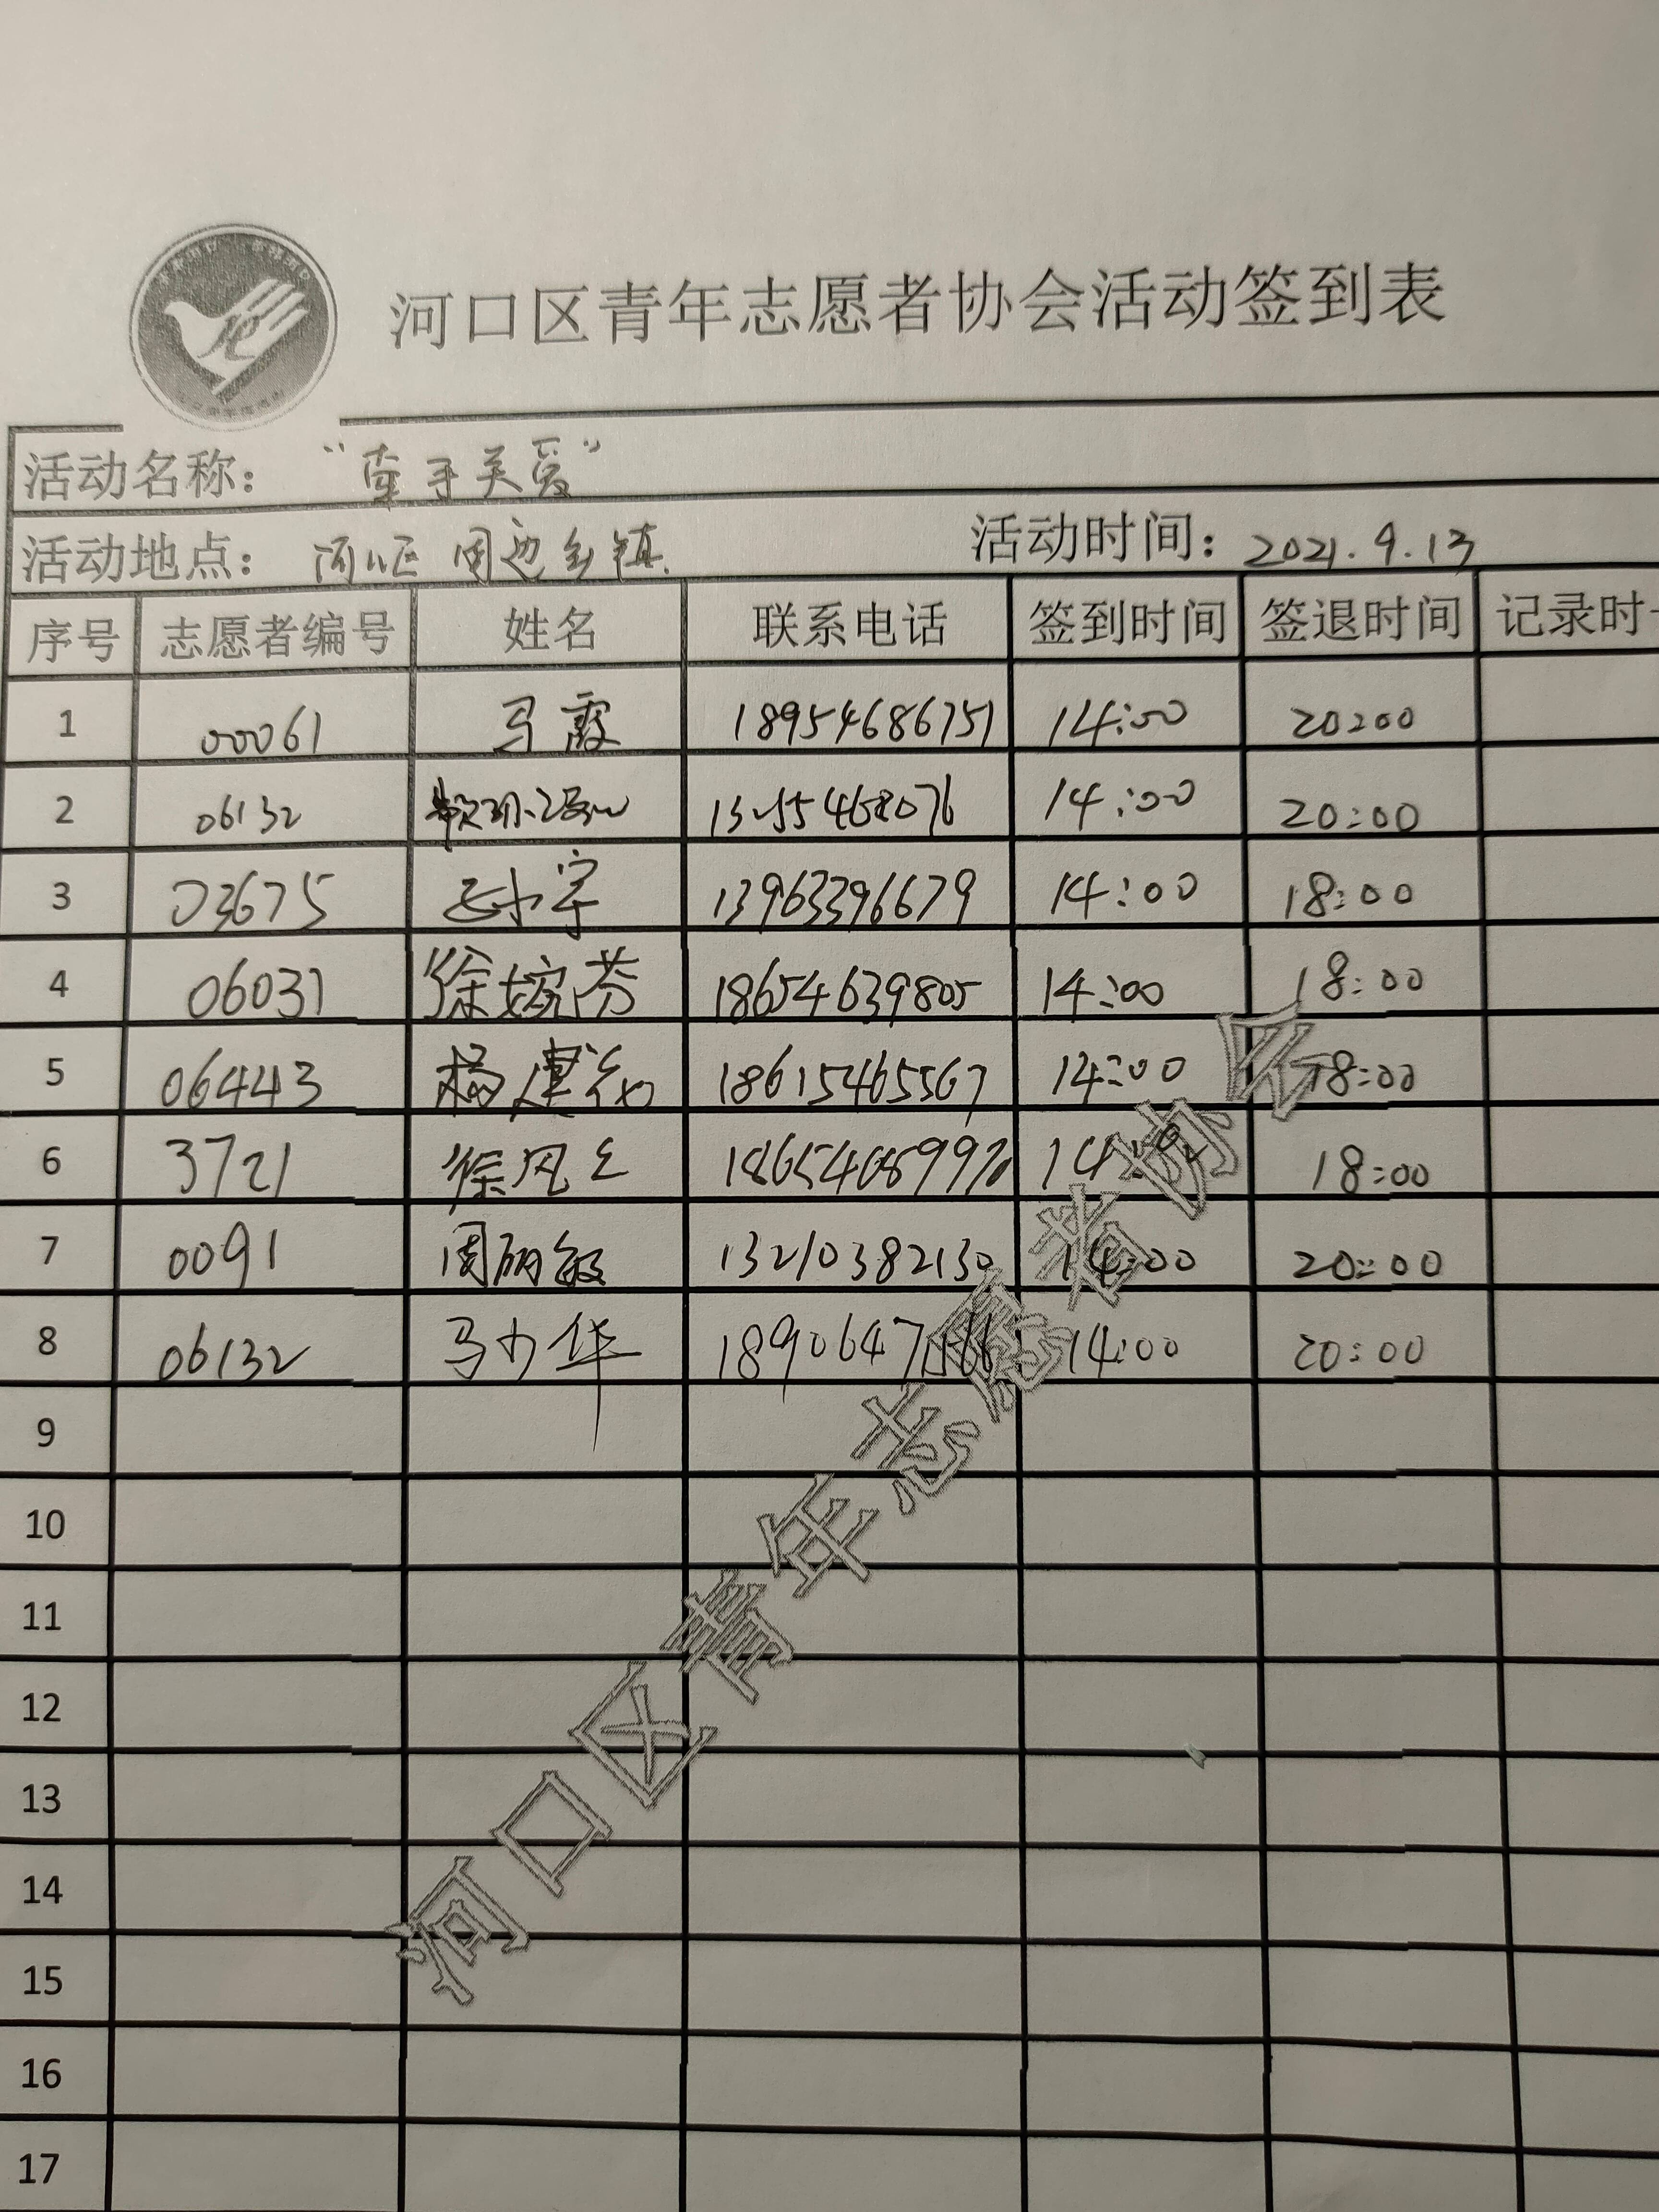 河口区青年志愿者协会活动签到表
活动名称： “牵手关爱”
活动地点： 河口区周边乡镇 活动时间：2021.9.13
序号 志愿者编号 姓名 联系电话 签到时间 签退时间 记录时
1 00061 马霞 18954686751 14:00 20:00
2 06132 14:00 20:00
3 03675 13963396679 14:00 18:00
4 06031 徐婉芬 18654639805 14:00 18:00
5 06443 杨建 18615465567 14:00 18:00
6 3721 徐风 14:00 18:00
7 0091 周丽敏 13210382130 14:00 20:00
8 06132 马少华 14:00 20:00
9
10
11
12
13
14
15
16
17
河口区青年志愿者协会